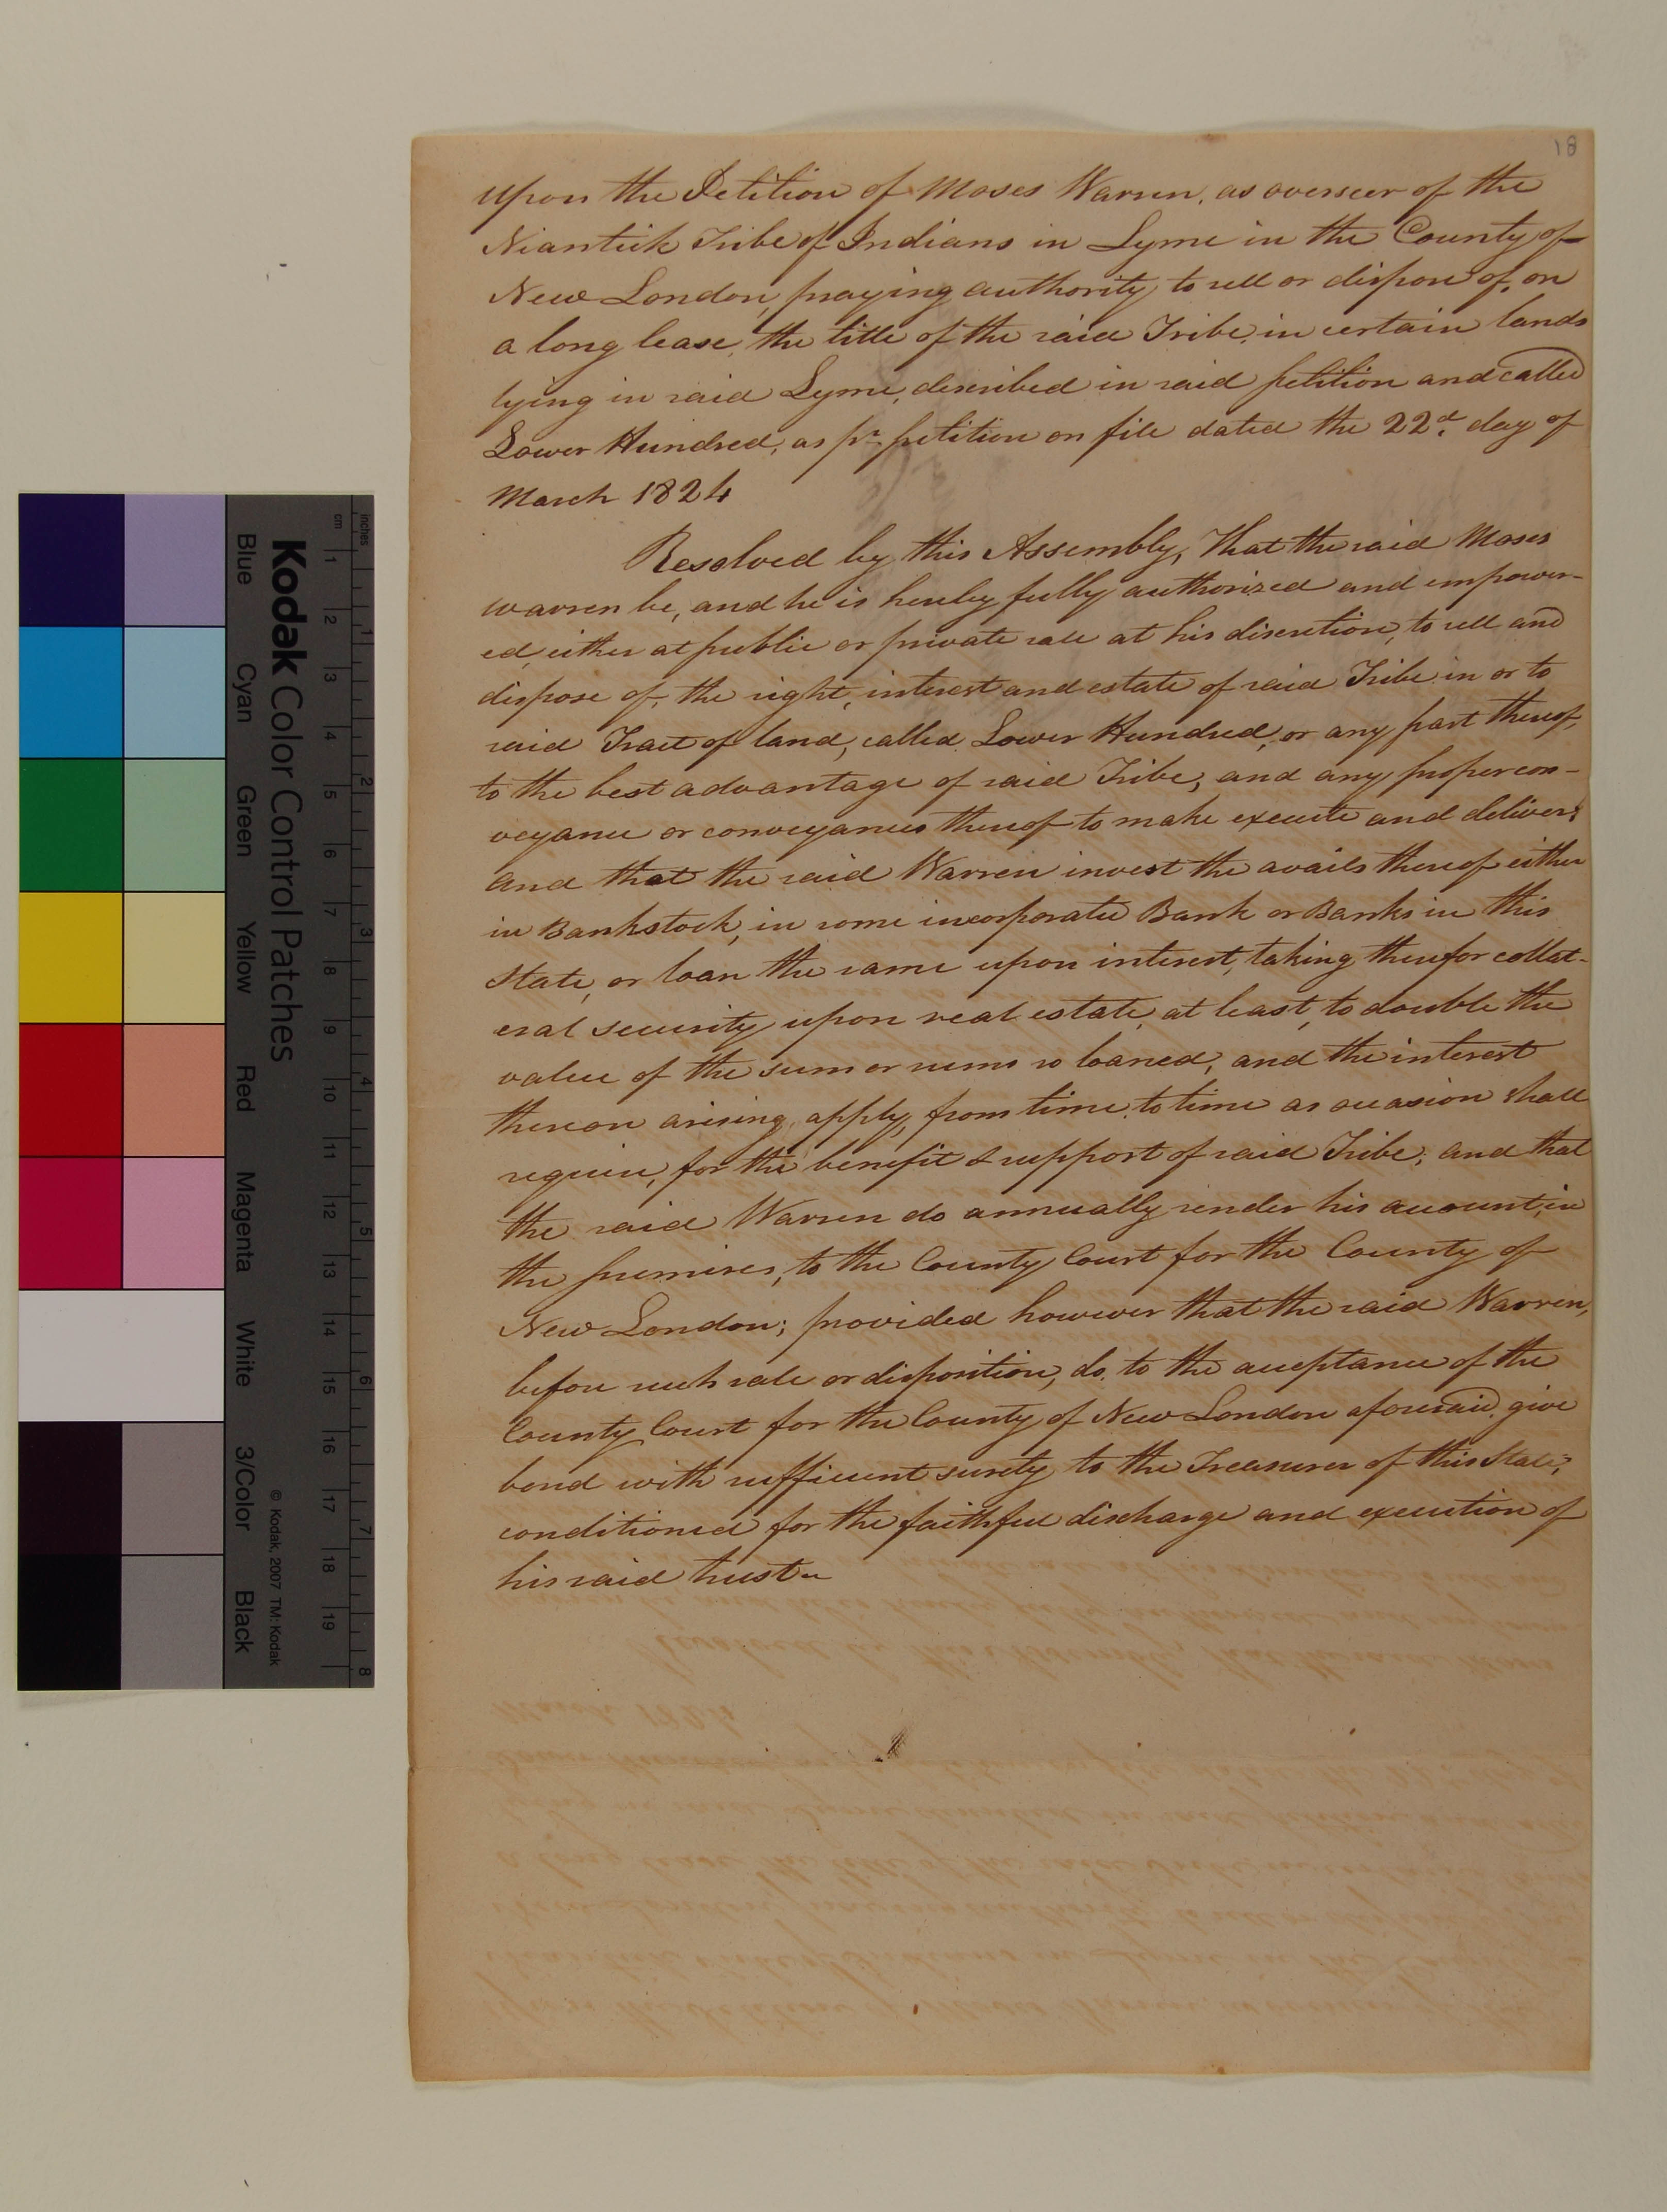 18
Upon the Petition of Moses Warren, as overseer of the
Niantick Tribe of Indians in Lyme in the County of
New London, praying authority to sell or dispose of, on
a long lease, the title of the said Tribe, in certain lands
lying in said Lyme, described in said petition and called
Lower Hundred, as pr. petition on file dated the 22d. day of
March 1824
Resolved by this Assembly, That the said Moses
Warren be, and he is hereby fully authorized and empower-
ed, either at public or private sale at his discretion, to sell and
dispose of, the right, interest and estate of said Tribe in or to
said Tract of land, called Lower Hundred, or any part thereof,
to the best advantage of said Tribe, and any proper con-
veyance or conveyances thereof to make execute and deliver;
and that the said Warren invest the avails thereof either
in Bankstock, in some incorporated Bank or Banks in this
State, or loan the same upon interest, taking therefor collat-
eral security upon real estate, at least, to double the
value of the sum or sums so loaned, and the interest
thereon arising, apply, from time to time as occasion shall
require, for the benefit & support of said Tribe; and that
the said Warren do annually render his account, in
the premises, to the County Court for the County of
New London; provided however that the said Warren,
before such sale or disposition, do, to the acceptance of the
County Court for the County of New London aforesaid, give
bond with sufficient surety to the Treasurer of this State,
conditioned for the faithful discharge and execution of
his said trust
inches
cm
1 2 3 4 5 6 7 8 9 10 11 12 13 14 15 16 17 18 19
1 2 3 4 5 6 7 8
Kodak Color Control Patches
© Kodak, 2007 TM: Kodak
Blue Cyan Green Yellow Red Magenta White 3/Color Black